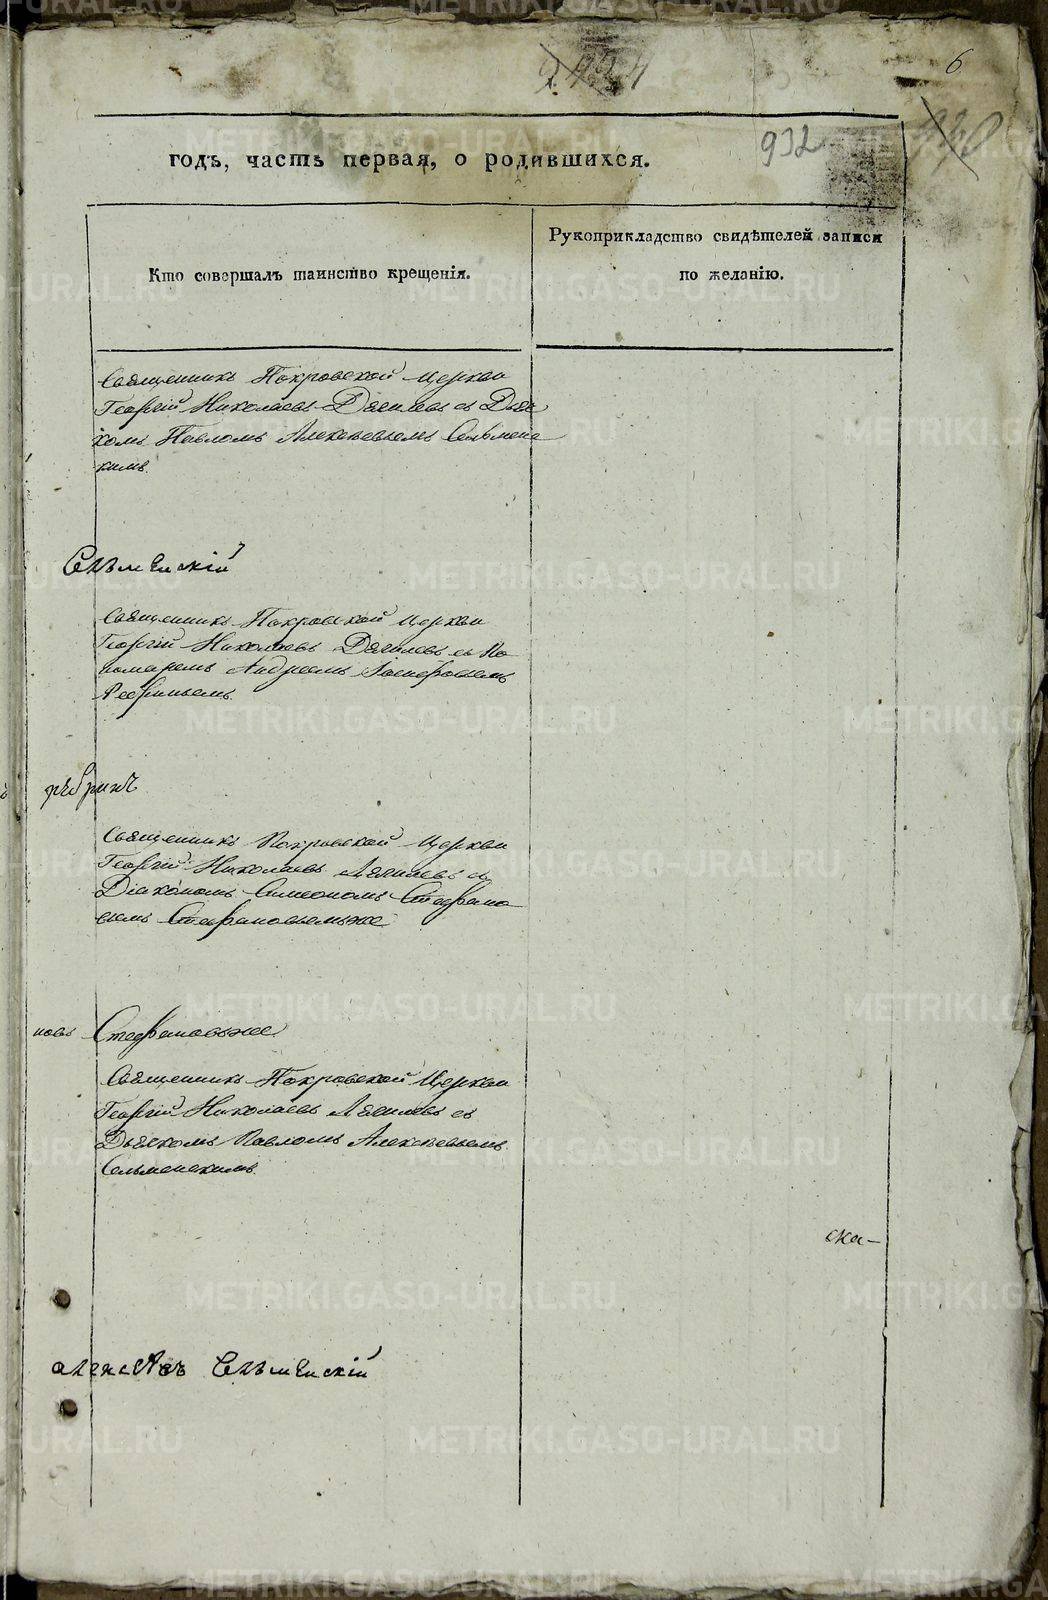 6
932
годъ, часть первая, о родившихся.
Кто совершалъ таинство крещенія.
Рукоприкладство свидѣтелей записи
по желанію.
Священникъ Покровской Церкви
Георгій Николаевъ Дягилевъ съ Дьяч
комъ Павломъ Алексѣевымъ Сельменс
кимъ.
Сельменскій
Священникъ Покровской Церкви
Георгій Николаевъ Дягилевъ съ По
номаремъ Андреемъ Іосифовымъ
Ребринымъ.
рѣбринъ
Священникъ Покровской Церкви
Георгій Николаевъ Дягилевъ съ
Діакономъ Симеономъ Стефано
вымъ Стефановымъже
новъ Стефановъже
Священникъ Покровской Церкви
Георгій Николаевъ Дягилевъ съ
Дьячкомъ Павломъ Алексѣевымъ
Сельменскимъ.
ска-
алексѣевъ Сельменскій
METRIKI.GASO-URAL.RU